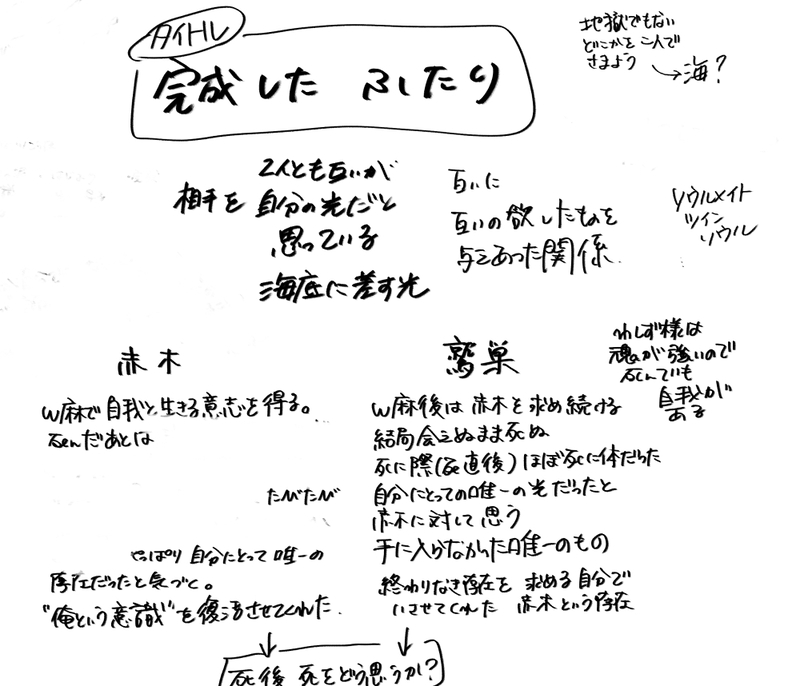 タイトル
完成した ふたり
地獄でもない
どこかを二人で
さまよう
→海?
2人とも互いが
相手を 自分の光だと
思っている
海底に差す光
互いに
互いの欲したものを
与えあった関係
ソウルメイト
ツイン
ソウル
赤木
W麻で自我と生きる意志を得る。
死んだあとは
たびたび
やっぱり 自分にとって 唯一の
存在だったと気づく。
"俺という意識"を復活させてくれた.
鷲巣
W麻後は 赤木を求め続ける
結局会えぬまま死ぬ
死に際(死直後)ほぼ死に体だった
自分にとっての唯一の光だったと
赤木に対して思う
手に入らなかった唯一のもの
終わりなき存在を 求める自分で
いさせてくれた 赤木という存在
わしず様は
魂が強いので
死んでいも
自我が
ある
死後 死をどう思うか?